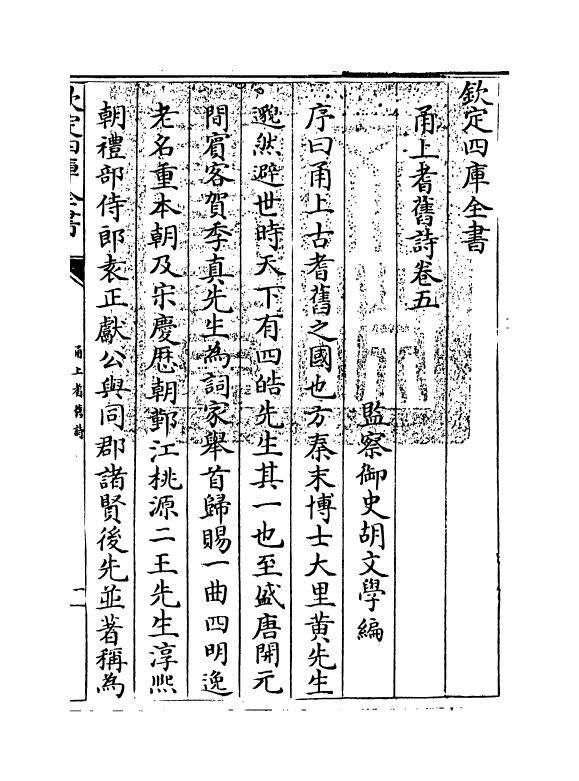 欽定四庫全書
甬上耆舊詩卷五
監察御史胡文學編
序曰甬上古耆舊之國也方秦末博士大里黄先生
邈然避世時天下有四皓先生其一也至盛唐開元
間賔客賀季真先生為詞家舉首歸賜一曲四明逸
老名重本朝及宋慶厯朝鄞江桃源二王先生淳熙
朝禮部侍郎袁正獻公與同郡諸賢後先並著稱為
欽定四庫全書
甬上耆舊詩